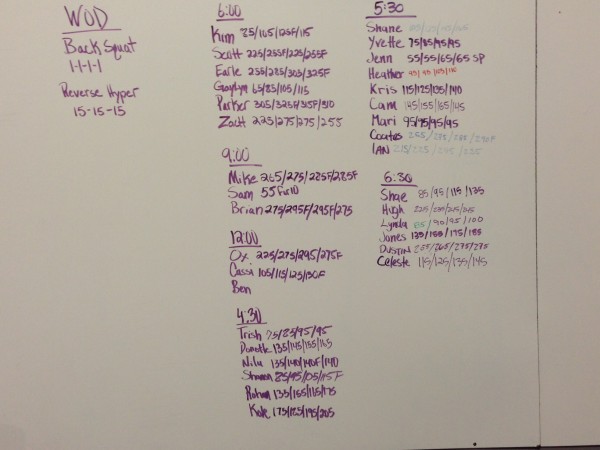 WOD
Back Squat
1-1-1-1
Reverse Hyper
15-15-15
6:00
Kim 85/105/125F/115
Scott 225/255F/225/255F
Earle 255/285/305/325F
Graylyn 65/85/105/115
Parker 305/325F/315F/310
Zach 225/275/275/255
9:00
Mike 265/275/285F/285F
Sam 55
Brian 275/295F/295F/275
12:00
Ox 225/275/295/275F
Cassi 105/115/125/130F
Ben
4:30
Trish 75/85/95/95
135/145/155/165
135/140/140F/140
Shannon 85/95/105/115F
135/155/115/175
Kyle 175/185/195/205
5:30
Shane
Yvette 75/85/95/95
Jenn 55/55/65/65 SP
Heather 95/95/105/115
Kris 115/125/135/140
Cam 145/155/165/145
Mari 95/95/95/95
Coates 255/285/285/290F
IAN 215/225/235/235
6:30
Shae 85/95/115/135
Hugh 225/235/245/245
Lynda 85/90/95/100
Jones 135/155/175/185
DUSTIN 235/265/275/275
Celeste 115/125/135/145